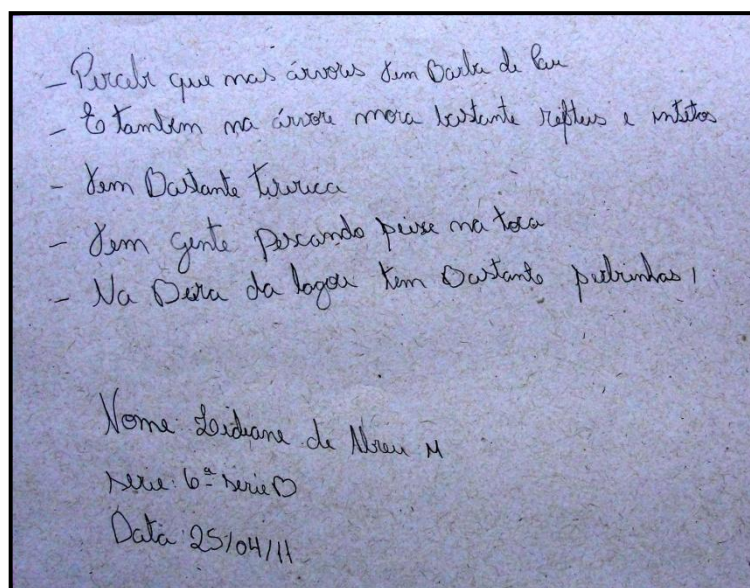 - Percebi que nas árvores tem Barba de Pau
- E também na árvore mora bastante repteis e intetos
- Tem Bastante tiririca
- Tem gente pescando peixe na toca
- Na Beira da lagoa tem Bastante pedrinhas,
Nome: Lidiane de Abreu M
serie: 6ª serie B
Data: 25/04/11